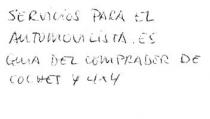 SERVICIOS PARA EL
AUTOMOVILISTA.ES
GUIA DEL COMPRADER DE
COCHET Y 4X4